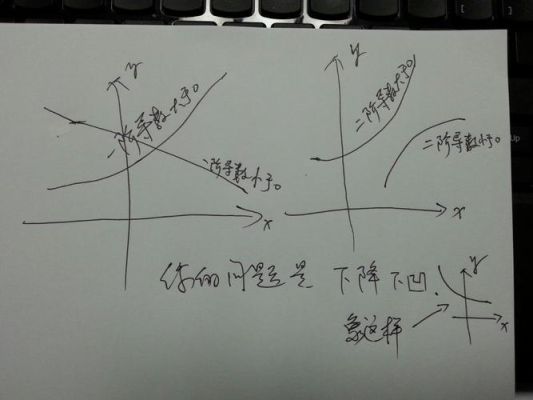 y
一阶导数大于0
一阶导数小于0
x
y
二阶导数大于0
二阶导数小于0
x
你的问题是 下降下凹.
象这样
y
x
Up